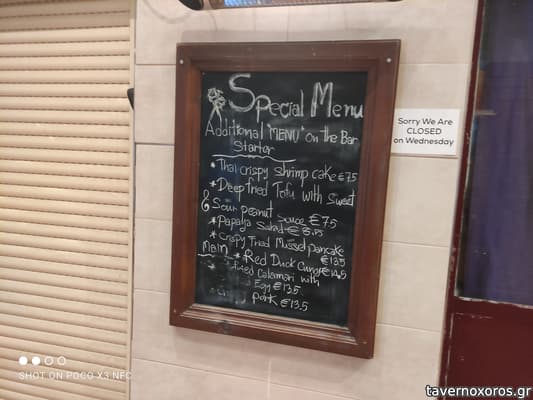 Special Menu
Additional "MENU" on the Bar
Starter
* Thai crispy shrimp cake €7.5
* Deep fried Tofu with Sweet
& Sour peanut sauce €7.5
* Papaja Salad €
* Crispy fried Mussel pancake
€13.5
Main * Red Duck Curry €14.5
fried Calamari with
Egg €13.5
pork €13.5
Sorry We Are
CLOSED
on Wednesday
SHOT ON POCO X3 NFC
tavernoxoros.gr